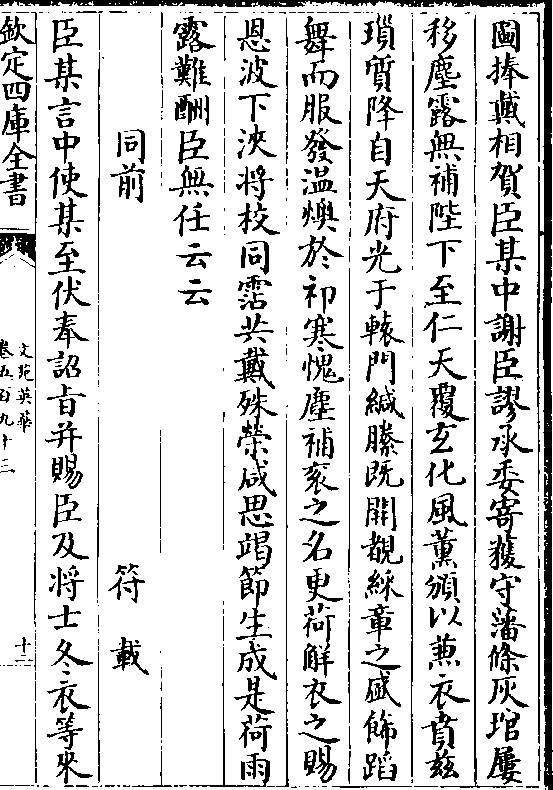 圖捧戴相賀臣某中謝臣謬承委寄獲守藩條灰琯屢
移塵露無補陛下至仁天覆玄化風薰頒以兼衣賁兹
瑣質降自天府光于轅門緘縢既開覩綵章之盛飾蹈
舞而服發温燠於初寒愧塵補衮之名更荷解衣之賜
恩波下浹將校同霑共戴殊榮咸思竭節生成是荷雨
露難酬臣無任云云
同前　符載
臣某言中使某至伏奉詔旨并賜臣及将士冬衣等来
欽定四庫全書
文苑英華
卷五百九十三
十二